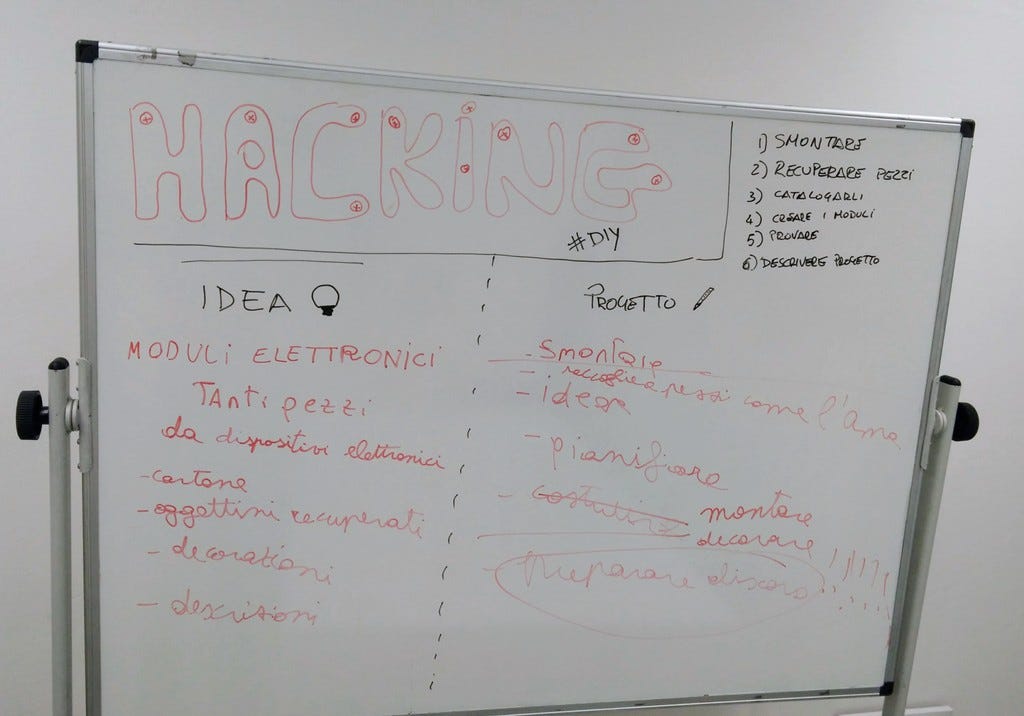 HACKING
#DIY
1) SMONTARE
2) RECUPERARE PEZZI
3) CATALOGARLI
4) CREARE I MODULI
5) PROVARE
6) DESCRIVERE PROGETTO
IDEA
MODULI ELETTRONICI
TANTI pezzi
da dispositivi elettronici
- cartone
- oggettini recuperati
- decorazioni
- descrizioni
PROGETTO
- Smontare
- pezzi come l'Ama
- ideare
- pianificare
- costruire montare
decorare
- Preparare discorso !!!!!